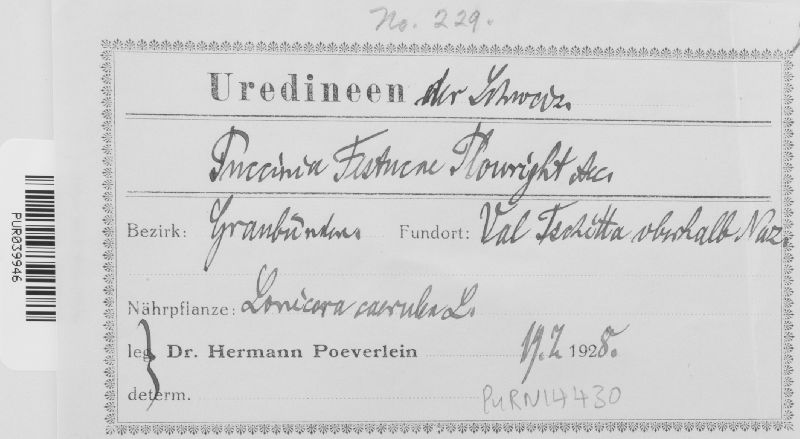 No. 229.
Uredineen der Schweiz.
Puccinia Festucae Plowright Aec.
Bezirk: Graubünden. Fundort: Val Tschitta oberhalb Naz.
Nährpflanze: Lonicera caerulea L.
leg. Dr. Hermann Poeverlein 19.7. 1928.
determ.
PURN14430
PUR039946